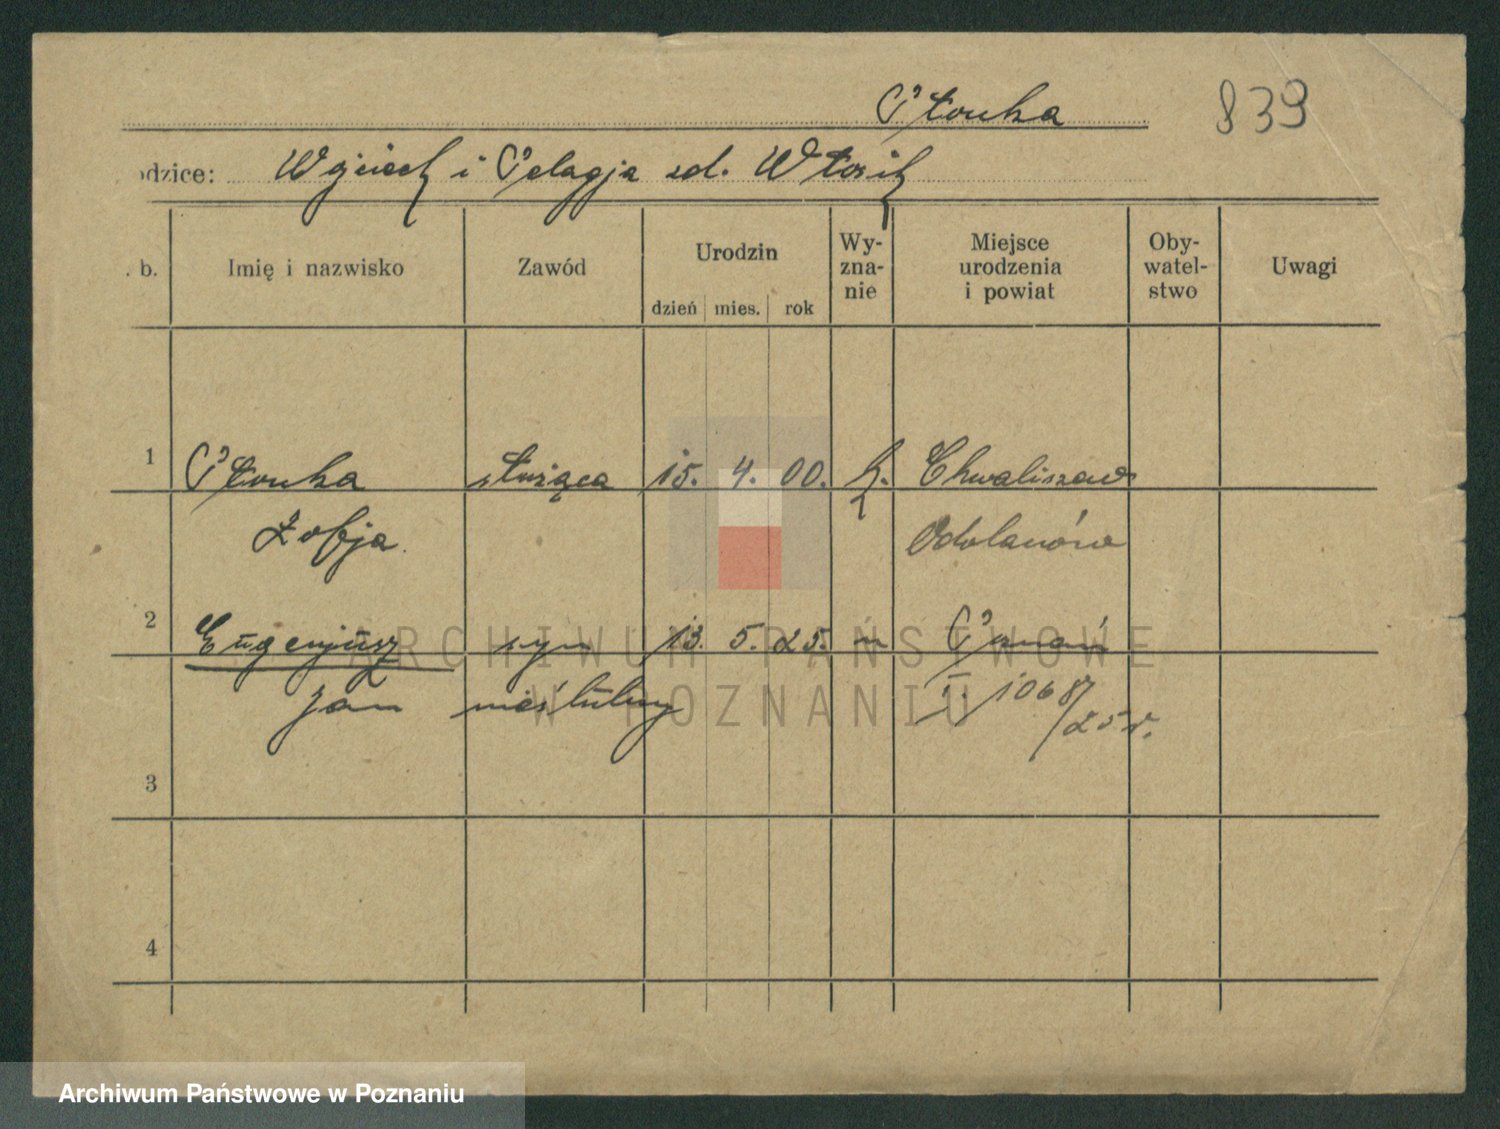 Płonka 839
odzice: Wojciech i Pelagja zd. Włosik
. b. Imię i nazwisko Zawód Urodzin dzień mies. rok Wy-zna-nie Miejsce urodzenia i powiat Oby-watel-stwo Uwagi
1 Płonka służąca 15. 4. 00. k. Chwaliszew
Zofja. Odolanów
2 Eugenjusz syn 13. 5. 25. " Poznań
Jan nieślubny 1068/25 r.
3
4
ARCHIWUM PAŃSTWOWE
W POZNANIU
Archiwum Państwowe w Poznaniu